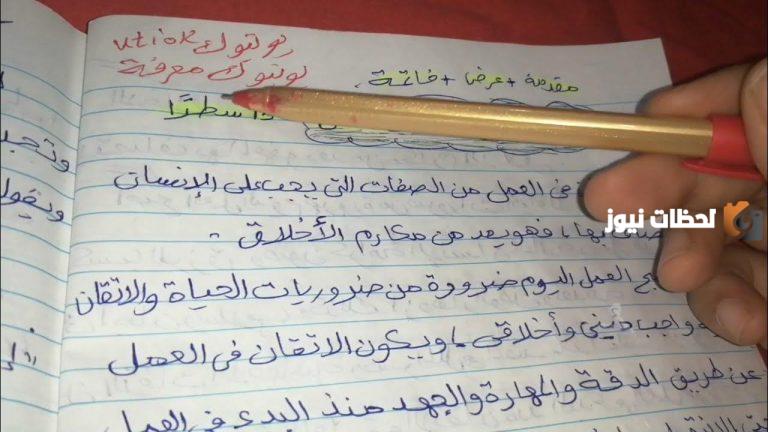 utiok يوتيوك
يوتيوك معرفة
مقدمة + عرض + خاتمة.
سطرًا
فى العمل من الصفات التى يجب على الإنسان
بها، فهو يعد من مكارم الأخلاق.
العمل اليوم ضرووة من ضروريات الحياة والاتقان
واجب دينى وأخلاقى، ويكون الاتقان فى العمل
عن طريق الدقة والمهارة والجهد منذ البدء فى العمل
لحظات نيوز
وتجد
ويقول